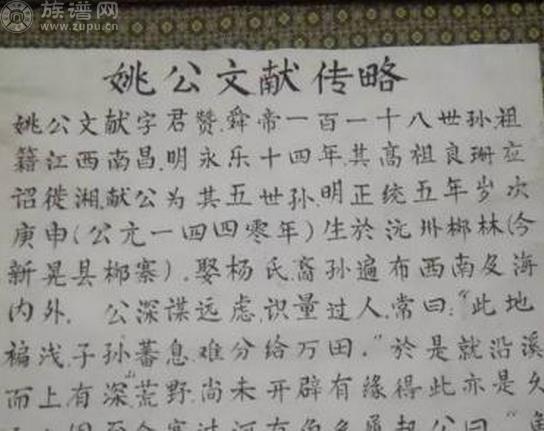 族谱网
www.zupu.cn
姚公文献传略
姚公文献字君赞.舜帝一百一十八世孙.祖
籍江西南昌.明永乐十四年.其高祖良珊应
诏徙湘.献公为其五世孙.明正统五年岁次
庚申(公元一四四零年)生於沅州梆林(今
新晃县梆寨).娶杨氏.裔孙遍布西南及海
内外. 公深谋远虑.识量过人.常曰:"此地
褊浅.子孙蕃息.难分给万田."於是就沿溪
而上有深荒野.尚未开辟有缘得此亦是久